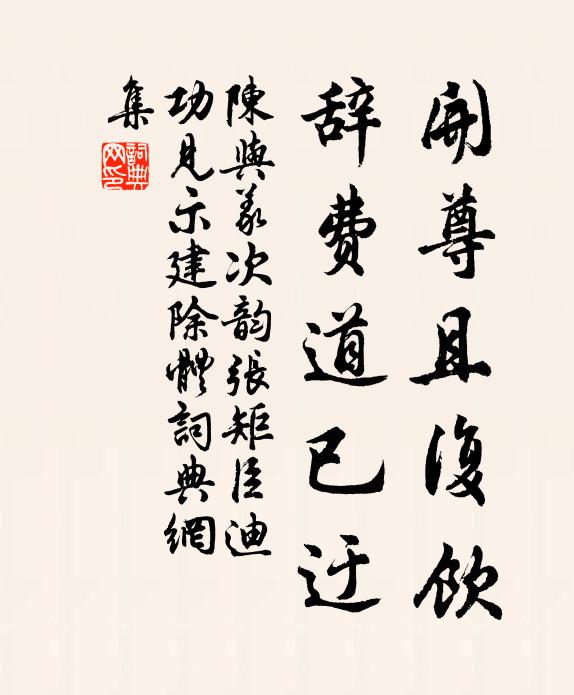 開尊且復飲
辭費道已迂
陳與義次韵張矩臣迪
功見示建除體詞典網
集
詞典
网印